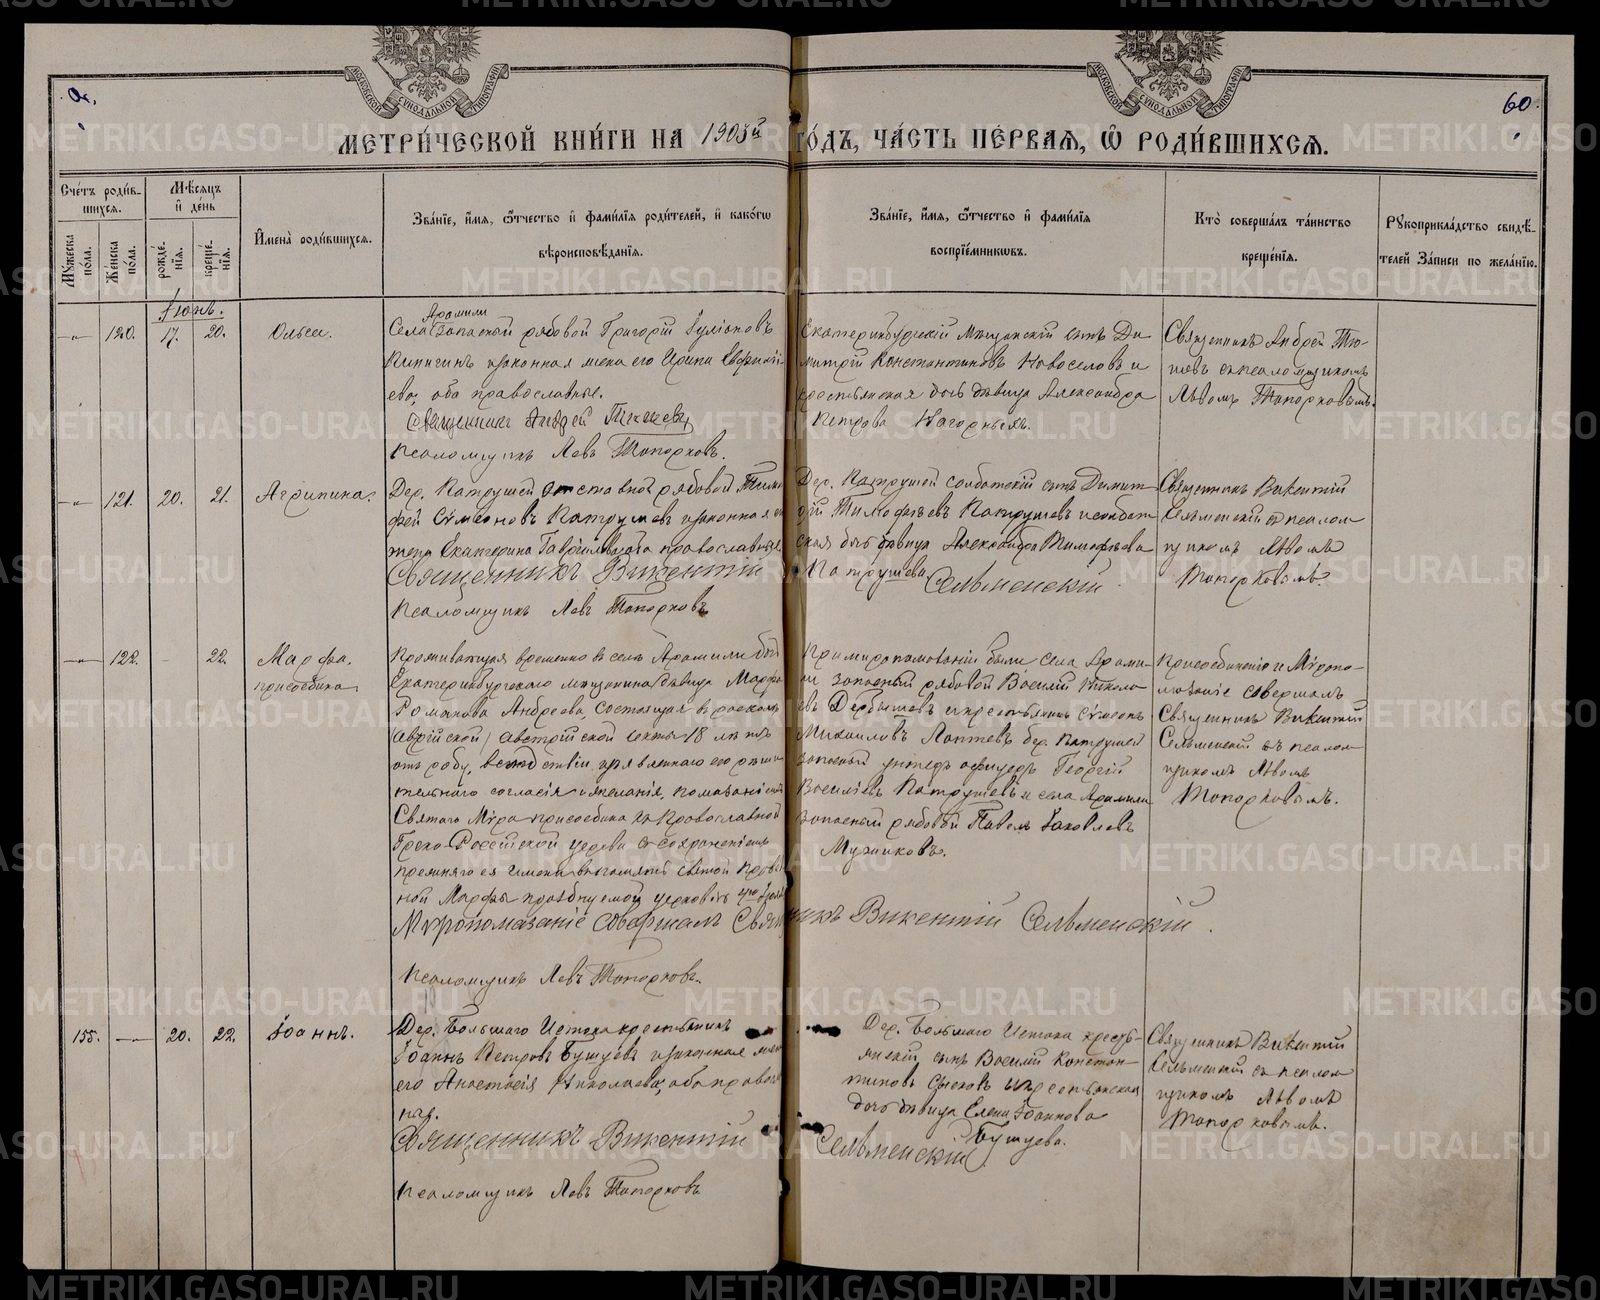 60.
МЕТРИ́ЧЕСКОЙ КНИ́ГИ НА 1903й ГО́ДЪ, ЧА́СТЬ ПЕ́РВАЯ, Ѡ҆ РОДИ́ВШИХСЯ.
МОСКОВСКОЙ СѴНОДАЛЬНОЙ ТИПОГРАФІИ
МОСКОВСКОЙ СѴНОДАЛЬНОЙ ТИПОГРАФІИ
Сче́тъ роди́в-
шихся.
Мꙋ́жеска по́ла.
Же́нска по́ла.
Мѣ́сяцъ
и҆ де́нь
рожде́нїя.
креще́нїя.
И҆мена̀ роди́вшихся.
Зва́нїе, и҆́мя, ѻ҆́тчество и҆ фами́лїя роди́телей, и҆ како́гѡ
вѣроисповѣ́данїя.
Зва́нїе, и҆́мя, ѻ҆́тчество и҆ фами́лїя
воспрїе́мниковъ.
Кто̀ соверша́лъ та́инство
креще́нїя.
Рꙋкоприкла́дство свидѣ́-
телей за́писи по жела́нїю.
Іюнь.
120. 17. 20. Ольга.
Арамили
Села запасной рядовой Григорій
законная жена его Ирина
ева, оба православные.
Священникъ Андрей
Псаломщикъ Левъ Топорковъ.
Екатеринбургскій мѣщанскій сынъ Ди
митрій Константиновъ Новоселовъ и
крестьянская дочь дѣвица Александра
Петрова Нагорныхъ.
Священникъ Андрей
съ псаломщикомъ
Львомъ Топорковымъ.
121. 20. 21. Агрипина.
Дер. Патрушей отставной рядовой Тимо
фей Сѵмеоновъ Патрушевъ и законная его
жена Екатерина Гавріилова, оба православные.
Священникъ Викентій Сельменскій
Псаломщикъ Левъ Топорковъ
Дер. Патрушей солдатскій сынъ Димит
рій Тимофеевъ Патрушевъ и солдат
ская дочь дѣвица Александра Тимофѣева
Патрушева
Священникъ Викентій
Сельменскій съ псалом
щикомъ Львомъ
Топорковымъ.
122. 22. Марфа.
присоедина
Проживающая временно въ селѣ Арамили дочь
Екатеринбургскаго мѣщанина дѣвица Марфа
Романова Андреева, состоящая въ расколѣ
австрійской секты 18 лѣтъ
отъ роду, вслѣдствіи изъявленнаго ею рѣши
тельнаго согласія и желанія, помазаніемъ
Святаго Мѵра присоединена къ Православной
Греко-Россійской церкви съ сохраненіемъ
прежняго ея имени въ память святой
Марфы празднуемой церковію
Мѵропомазаніе совершалъ Священникъ Викентій Сельменскій.
Псаломщикъ Левъ Топорковъ.
При мѵропомазаніи были, села Арами
ли запасный рядовой Василій Никола
евъ и крестьянинъ Сѵмеонъ
Михаиловъ Лаптевъ дер. Патрушей
запасный унтеръ офицеръ Георгій
Василіевъ Патрушевъ и села Арамили
запасный рядовой Павелъ Іаковлевъ
Присоединеніе и Мѵропо-
мазаніе совершалъ
Священникъ Викентій
Сельменскій съ псалом
щикомъ Львомъ
Топорковымъ.
155. 20. 22. Іоаннъ.
Дер. Большаго Истока крестьянинъ
Іоаннъ Петровъ Бушуевъ и законная жена
его Анастасія Николаева, оба православ
ные.
Священникъ Викентій Сельменскій
Псаломщикъ Левъ Топорковъ
Дер. Большаго Истока кресть-
янскій сынъ Василій Констан-
тиновъ и крестьянская
дочь дѣвица Елена Іоаннова
Бушуева.
Священникъ Викентій
Сельменскій съ псалом
щикомъ Львомъ
Топорковымъ.
METRIKI.GASO-URAL.RU